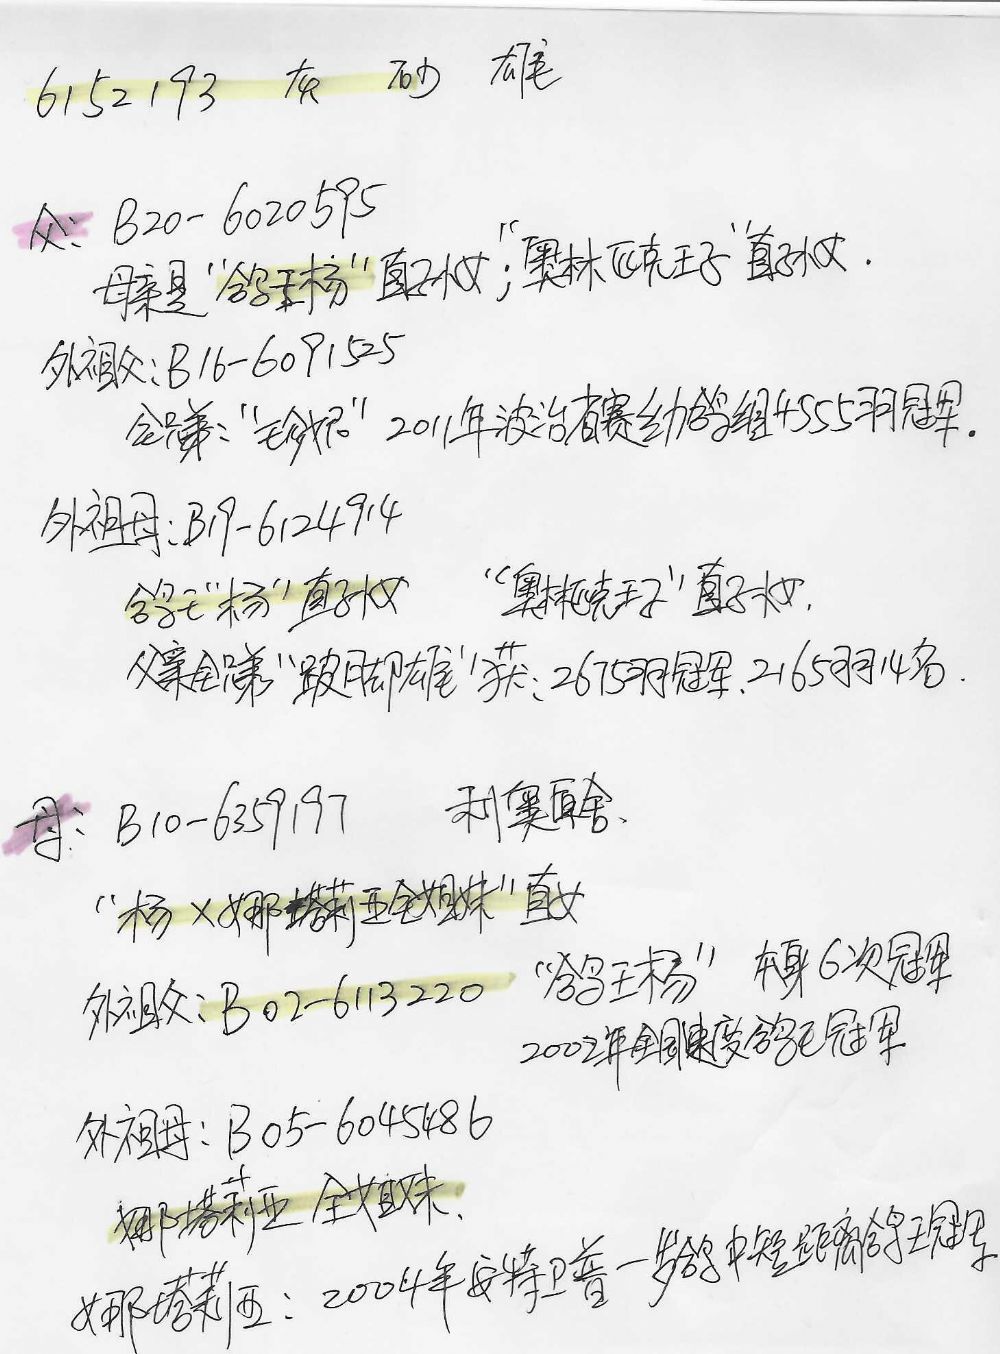 6152193 灰 砂 雄
父: B20-6020595
母亲是"鸽王杨"直子女;"奥林匹克王子"直子女.
外祖父:B16-6091525
全兄弟:"珍妮" 2011年波治省赛幼鸽组4555羽冠军.
外祖母:B19-6124914
鸽王"杨"直子女 "奥林匹克王子"直子女.
父亲全兄弟"跛脚雄"获:2675羽冠军、2165羽14名.
母: B10-6359197 利奥原舍.
"杨×娜塔莉亚全姐妹"直女
外祖父:B02-6113220 "鸽王杨" 本身6次冠军
2002年全国速度鸽王冠军
外祖母:B05-6045486
娜塔莉亚 全姐妹.
娜塔莉亚:2004年安特卫普一岁鸽中短距离鸽王冠军